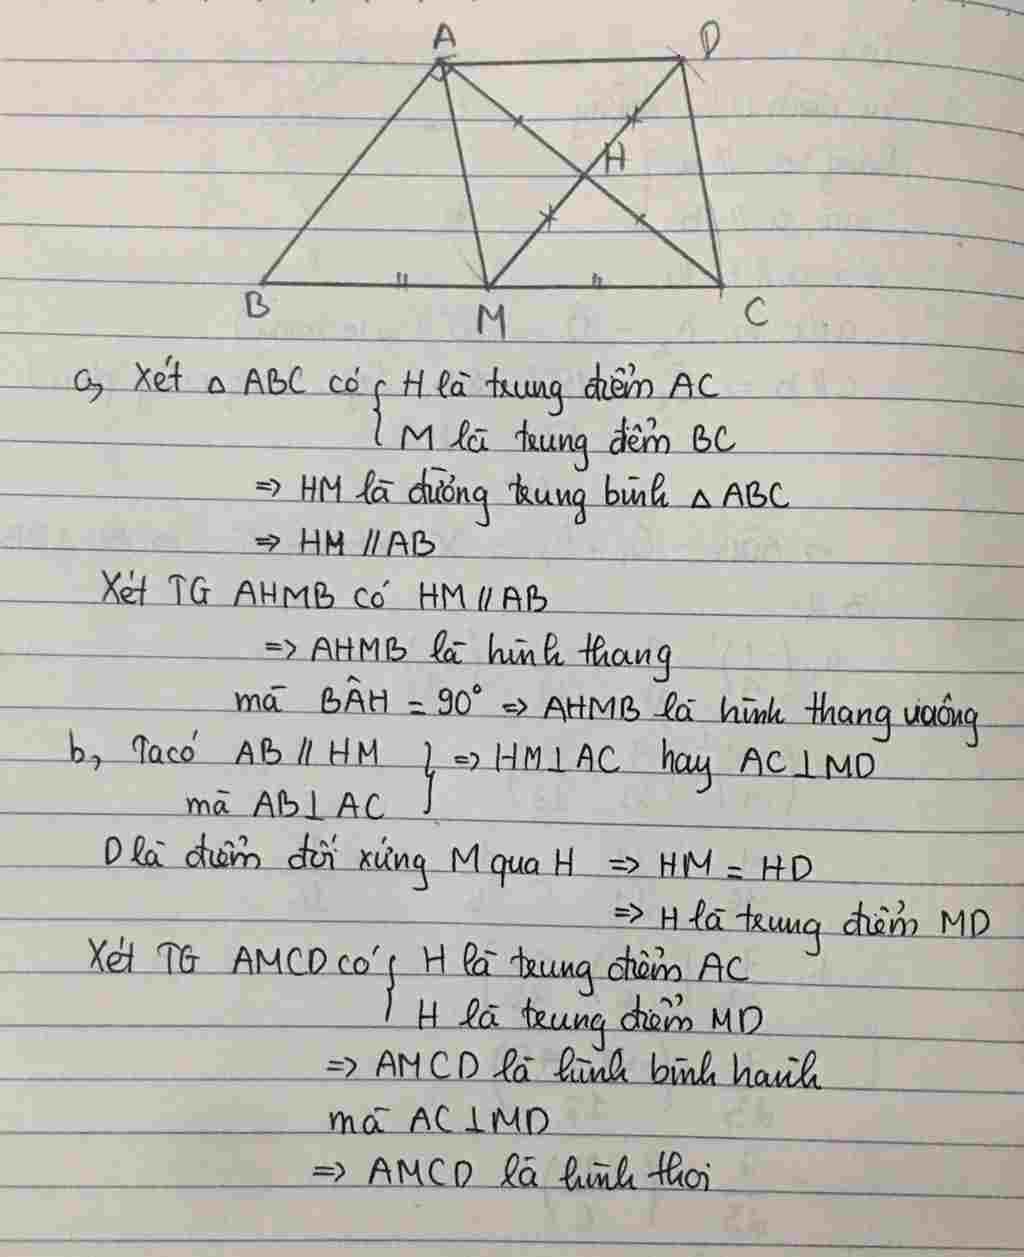 A
D
H
B
M
C
a, Xét △ ABC có { H là trung điểm AC
M là trung đểm BC
=> HM là đường trung bình △ ABC
=> HM // AB
Xét TG AHMB có HM // AB
=> AHMB là hình thang
mà BÂH = 90° => AHMB là hình thang vuông
b, Ta có AB // HM } => HM ⊥ AC hay AC ⊥ MD
mà AB ⊥ AC
D là điểm đối xứng M qua H => HM = HD
=> H là trung điểm MD
Xét TG AMCD có { H là trung điểm AC
H là trung điểm MD
=> AMCD là hình bình hành
mà AC ⊥ MD
=> AMCD là hình thoi